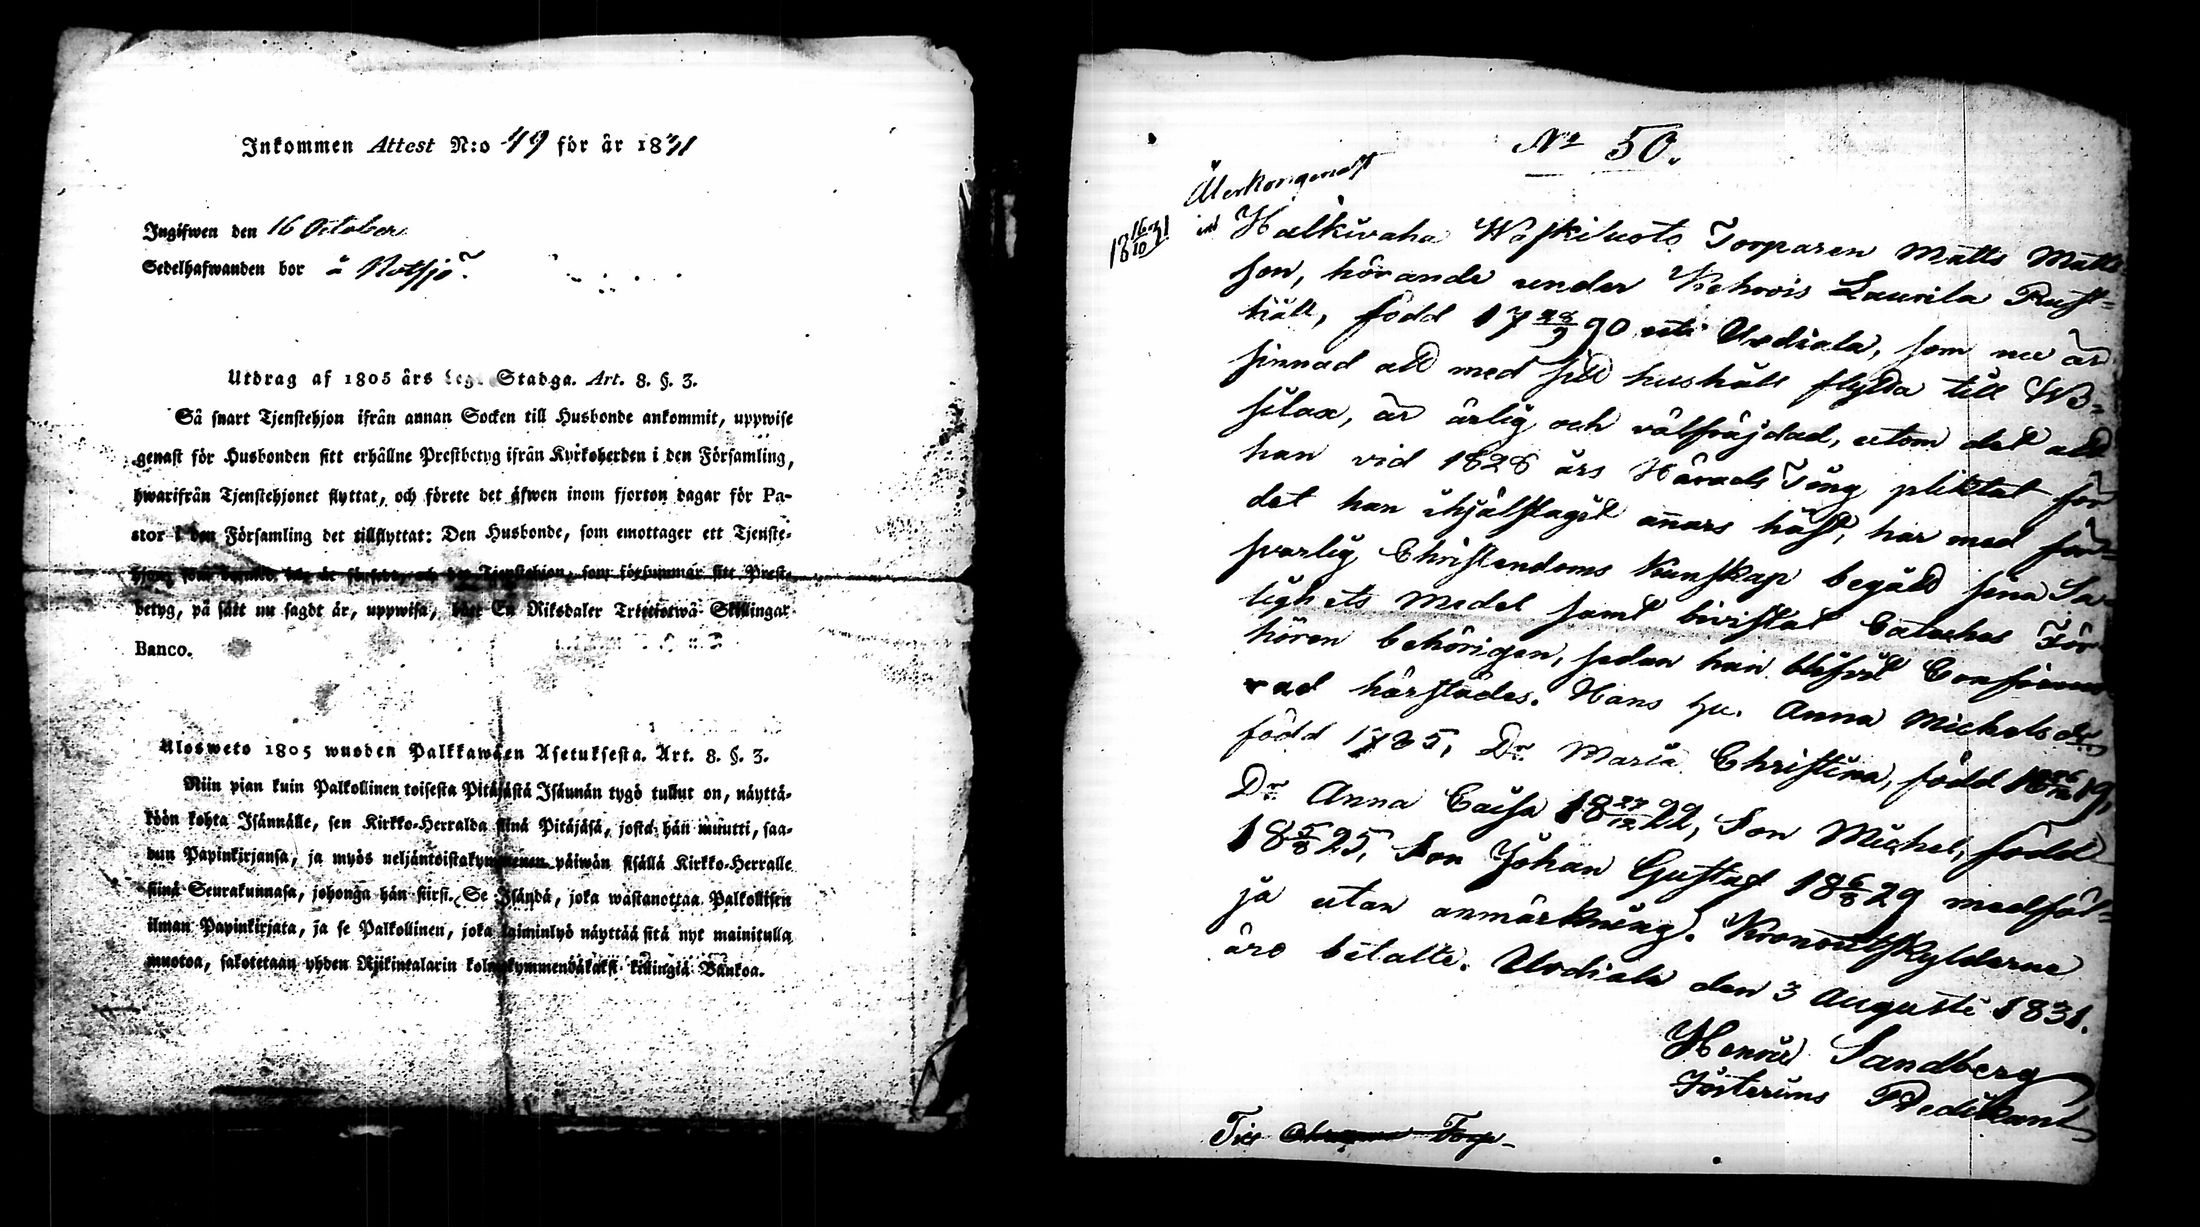 Inkommen Attest N:o 49 för år 1831
Ingifwen den 16 October
Sedelhafwanden bor å Notsjö.
Utdrag af 1805 års Lego Stadga. Art. 8. §. 3.
Så snart Tjenstehjon ifrån annan Socken till Husbonde ankommit, uppwise
genast för Husbonden sitt erhållne Prestbetyg ifrån Kyrkoherden i den Församling,
hwarifrån Tjenstehjonet flyttat, och förete det äfwen inom fjorton dagar för Pa-
stor i den Församling det tillflyttat: Den Husbonde, som emottager ett Tjenste-
hjon, som Tjenstehjon, som försummar sitt Prest-
betyg, på sätt nu sagdt är, uppwisa, böte En Riksdaler Trettiotwå Skillingar
Banco.
Ulosweto 1805 wuoden Palkkawäen Asetuksesta. Art. 8. §. 3.
Niin pian kuin Palkollinen toisesta Pitäjästä Isännän tygö tullut on, näyttä-
köön kohta Isännälle, sen Kirkko-Herralda siinä Pitäjäsä, josta hän muutti, saa-
dun Papinkirjansa, ja myös neljäntoistakymmenen päiwän sisällä Kirkko-Herralle
siinä Seurakunnasa, johonga hän siirsi. Se Isändä, joka wastanottaa Palkollisen
ilman Papinkirjata, ja se Palkollinen, joka laiminlyö näyttää sitä nyt mainitulla
muotoa, sakotetaan yhden Rijkintalarin kolmekymmendäkaksi killingiä Bankoa.
No 50.
18 16/10 31
Halkivaha Torparen Matts Matts
son, hörande under Laurila Rust=
håll, född 17 28/9 90 uti Urdiala, som nu är
sinnad att med sitt hushåll flytta till We=
silax, är ärlig och välfräjdad, utom det att
han vid 1828 års Härads Ting pliktat för
det han ihjälslagit annars häst, har med för=
svarlig Christendoms kunskap begått sina Sa=
lighets Medel samt bivistat Catechес För
hören behörigen, sedan han blifvit Confirme
rad härstädes. Hans hu. Anna Michelsdr
född 1785, Dr. Maria Christina, född 19,
Dr. Anna Caisa 18 27/12 22, Son Michel, född
18 5/8 25, Son Johan Gustaf 18 6/8 29 medföl=
ja utan anmärkning. Kronoutskylderne
äro betalte. Urdiala den 3 Augusti 1831.
Henric Sandberg
Predikant
Till Torp